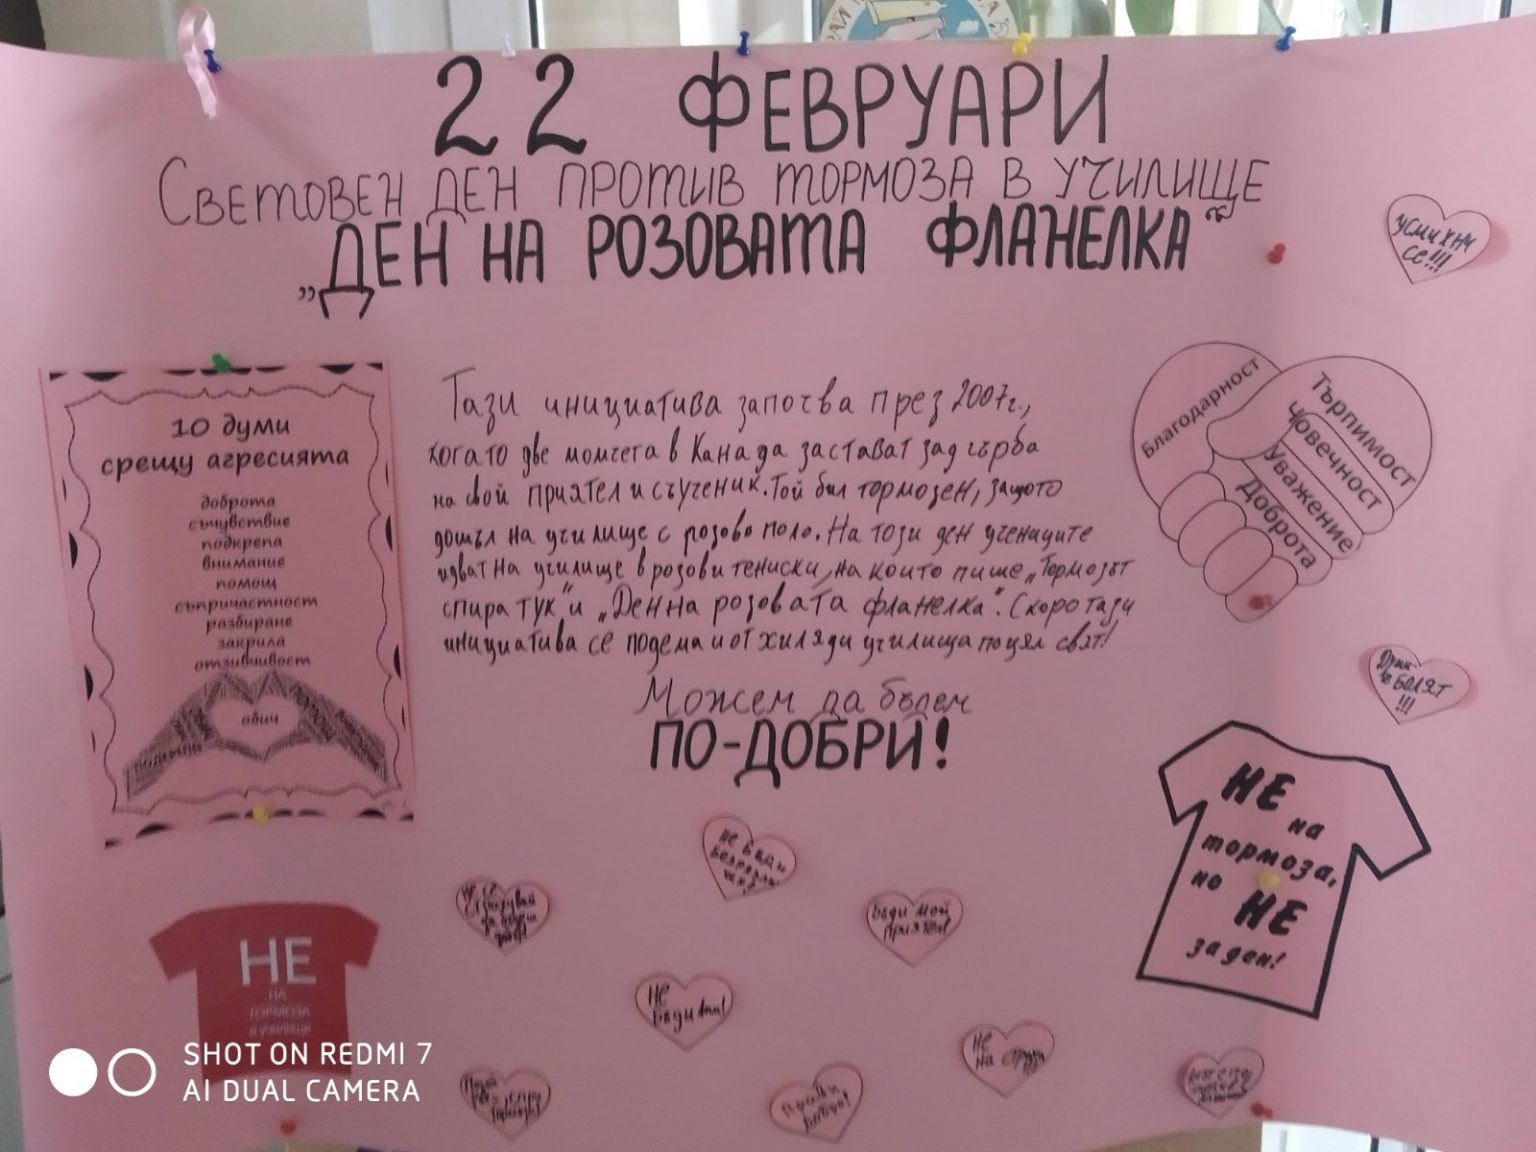 22 ФЕВРУАРИ
СВЕТОВЕН ДЕН ПРОТИВ ТОРМОЗА В УЧИЛИЩЕ
„ДЕН НА РОЗОВАТА ФЛАНЕЛКА“
УСМИХНИ
СЕ!!!
10 думи
срещу агресията
доброта
съчувствие
подкрепа
внимание
помощ
съпричастност
разбиране
закрила
отзивчивост
обич
Тази инициатива започва през 2007г.,
когато две момчета в Канада застават зад гърба
на свой приятел и съученик. Той бил тормозен, защото
дошъл на училище с розово поло. На този ден учениците
идват на училище в розови тениски, на които пише „Тормозът
спира тук“ и „Ден на розовата фланелка“. Скоро тази
инициатива се подема и от хиляди училища по цял свят!
Можем да бъдем
ПО-ДОБРИ!
Благодарност
Търпимост
Човечност
Уважение
Доброта
Думи-
те БОЛЯТ
!!!
НЕ
на
тормоза,
но НЕ
за ден!
НЕ
НА
ТОРМОЗА
в училище
НЕ БЪДИ
НЕ СЕ
Бъди мой
приятел!
НЕ
бъди
НЕ
НА
Прави
добро!
SHOT ON REDMI 7
AI DUAL CAMERA